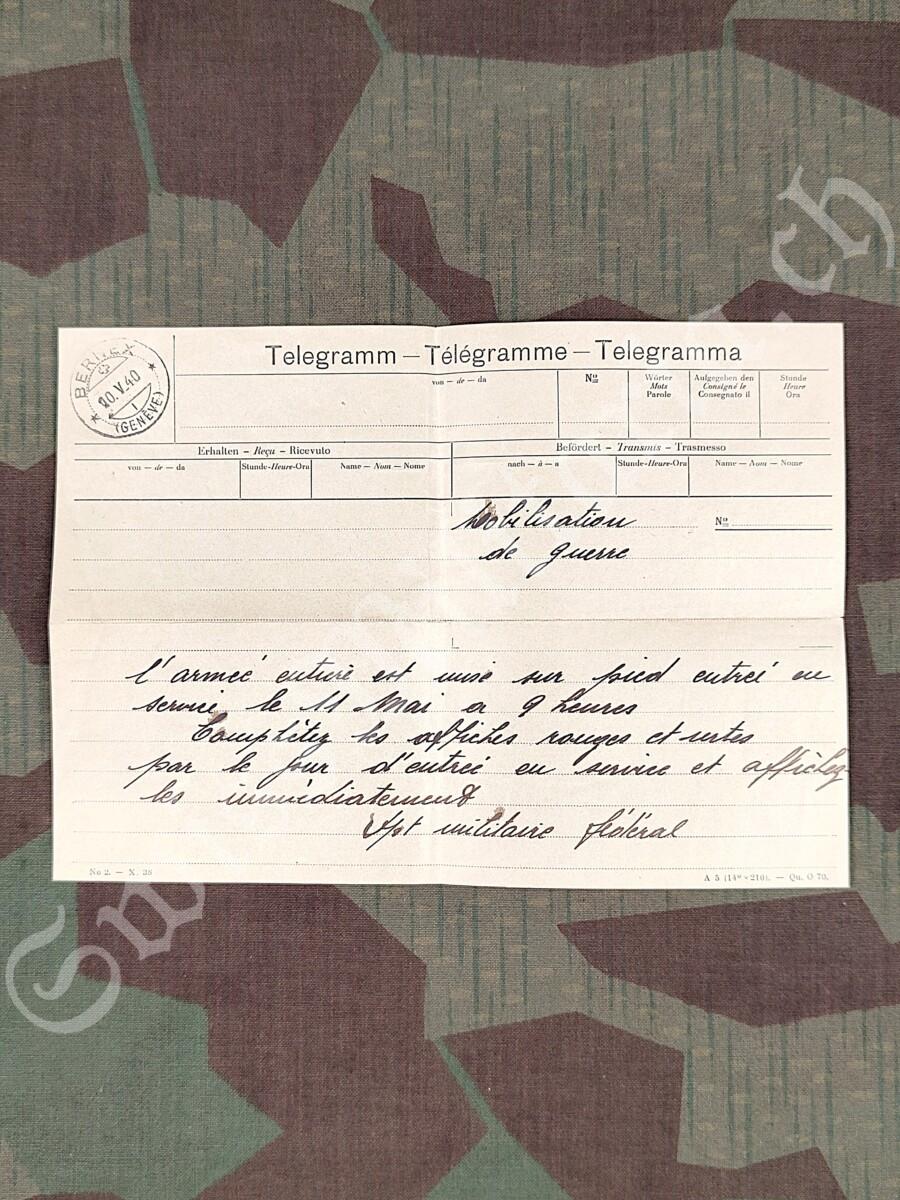 Telegramm — Télégramme — Telegramma
BERNEX
10.V.40
(GENÈVE)
von — de — da
No
Wörter
Mots
Parole
Aufgegeben den
Consigné le
Consegnato il
Stunde
Heure
Ora
Erhalten – Reçu – Ricevuto
Befördert – Transmis – Trasmesso
von — de — da
Stunde-Heure-Ora
Name — Nom — Nome
nach — à — a
Stunde-Heure-Ora
Name — Nom — Nome
Mobilisation
No
de guerre
l'armée entière est mise sur pied entrée en
service le 11 Mai a 9 heures
Complétez les affiches rouges et vertes
par le jour d'entrée en service et affichez
les immédiatement
Dpt militaire fédéral
No 2. — X. 38
A 5 (148×210). — Qu. O 70.